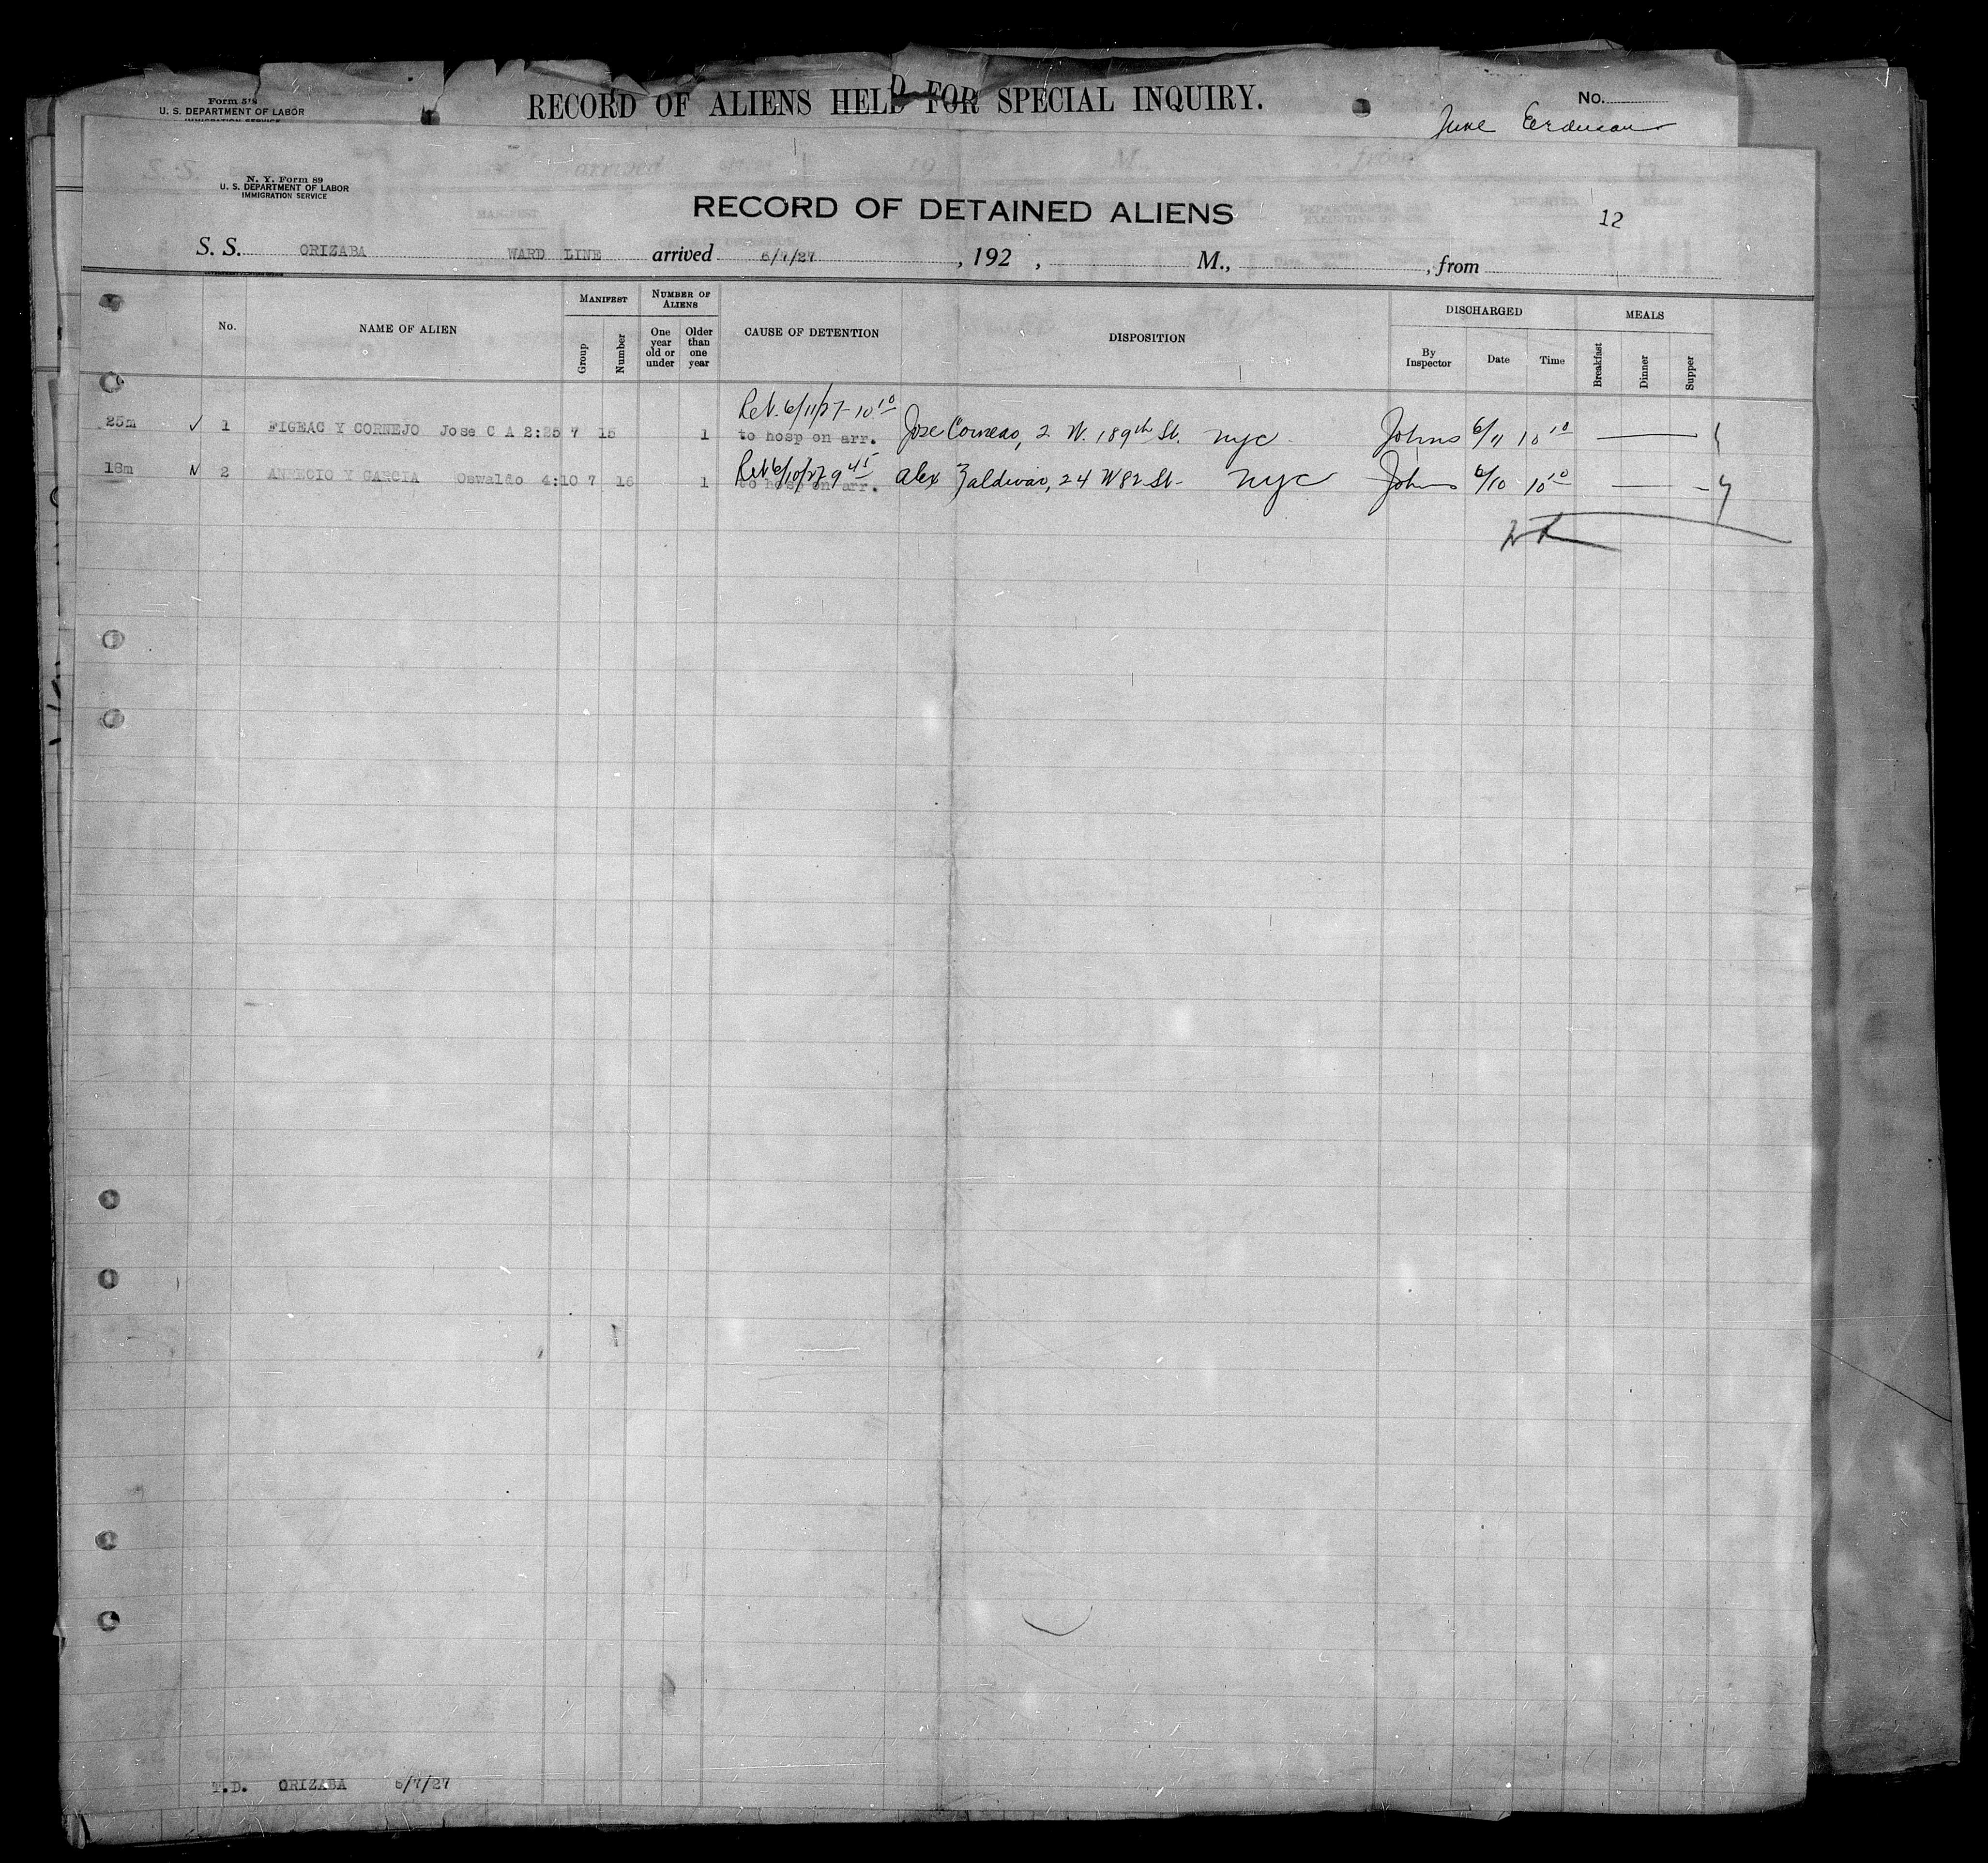 Form 518
U. S. DEPARTMENT OF LABOR
IMMIGRATION SERVICE
RECORD OF ALIENS HELD FOR SPECIAL INQUIRY.
No.
June
N. Y. Form 89
U. S. DEPARTMENT OF LABOR
IMMIGRATION SERVICE
RECORD OF DETAINED ALIENS
12
S. S. ORIZABA WARD LINE arrived 6/7/27, 192 , M., , from
No. NAME OF ALIEN MANIFEST NUMBER OF ALIENS CAUSE OF DETENTION DISPOSITION DISCHARGED MEALS
Group Number One year old or under Older than one year By Inspector Date Time Breakfast Dinner Supper
Rel. 6/11/27 - 10 10
25m ✓ 1 FIGEAC Y CORNEJO Jose C A 2:25 7 15 1 to hosp on arr. Jose Cornejo, 2 W. 189th St. NYC Johns 6/11 10 10
Rel 6/10/27 9 45
18m 2 Y GARCIA Oswaldo 4:10 7 16 1 to hosp on arr. Alex Zaldivar, 24 W 82 St. NYC Johns 6/10 10 10
T.D. ORIZABA 6/7/27